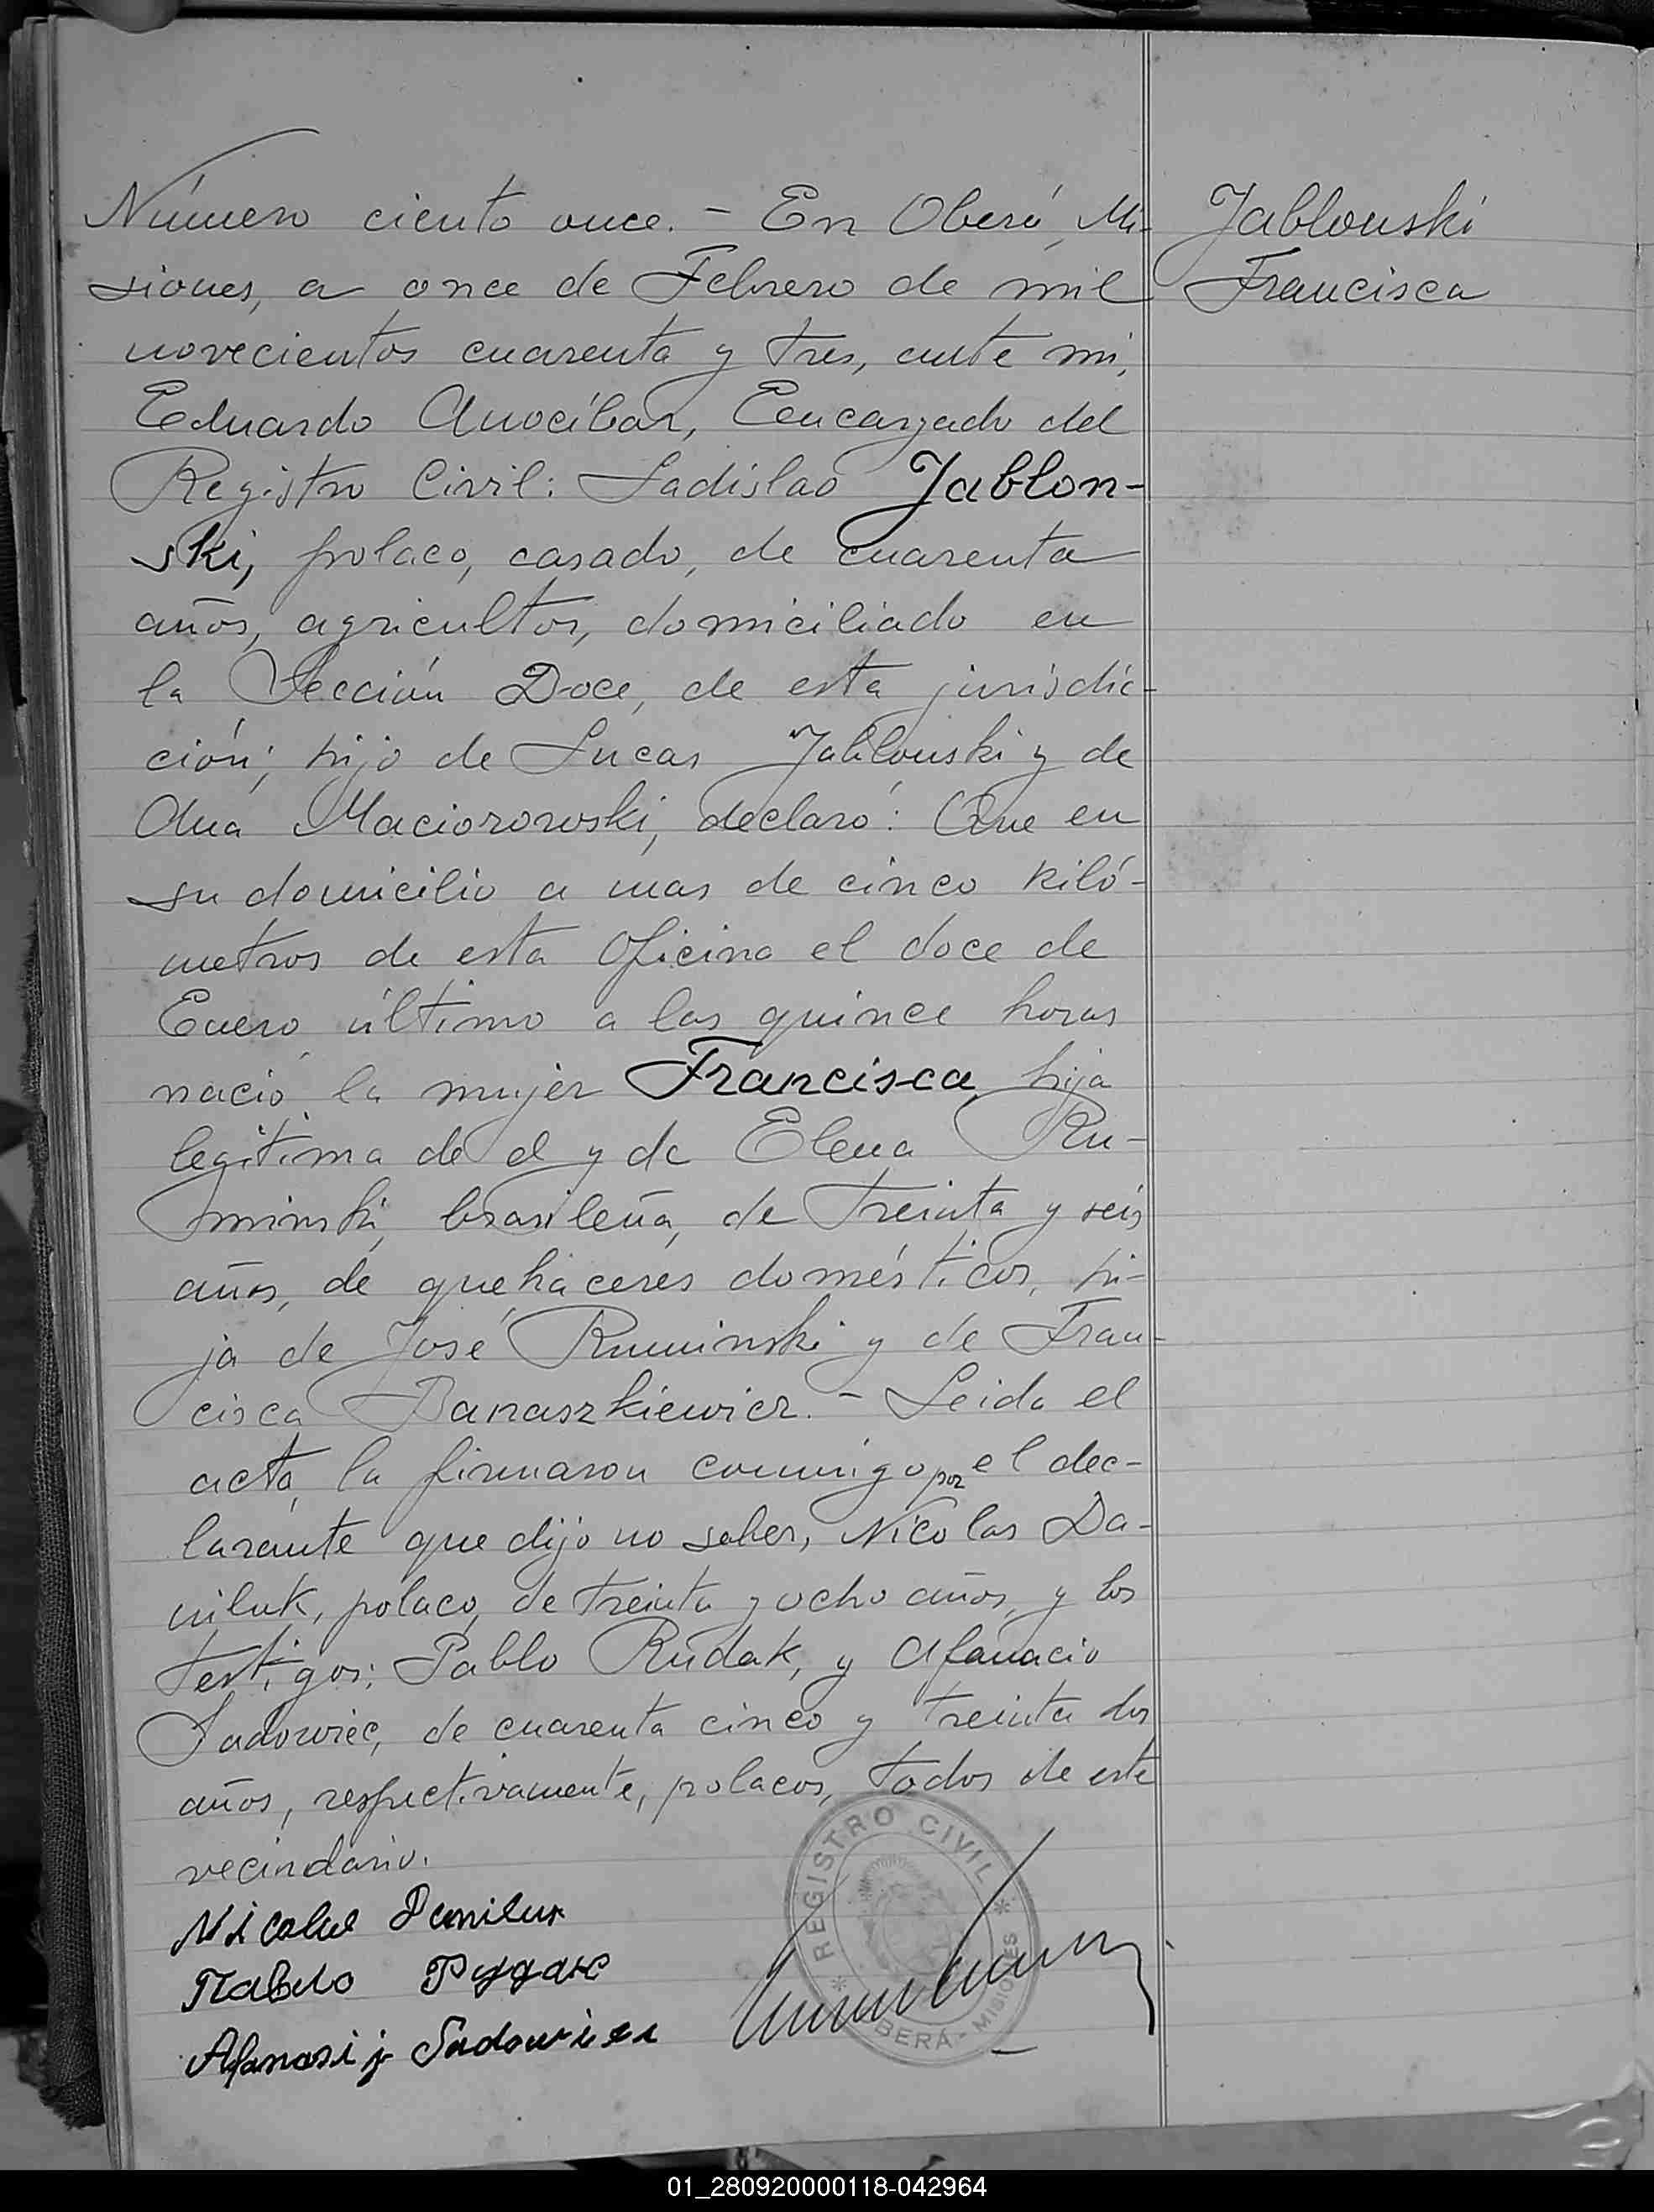 Número ciento once. - En Oberá, Mi-
siones, a once de Febrero de mil
novecientos cuarenta y tres, ante mi,
Eduardo Anocíbar, Encargado del
Registro Civil: Ladislao Jablon-
ski, polaco, casado, de cuarenta
años, agricultor, domiciliado en
la Sección Doce, de esta jurisdic-
ción; hijo de Lucas Jablonski y de
Ana Maciorowski, declaró: Que en
su domicilio a mas de cinco kiló-
metros de esta Oficina el doce de
Enero último a las quince horas
nació la mujer Francisca, hija
legítima de el y de Elena Ru-
minski, brasileña, de treinta y seis
años, de quehaceres domésticos, hi-
ja de José Ruminski y de Fran-
cisca Banaszkiewicz. - Leida el
acta, la firmaron conmigo por el dec-
larante que dijo no saber, Nicolas Da-
niluk, polaco, de treinta y ocho años, y los
testigos: Pablo Rudak, y Afanacio
Sadowiec, de cuarenta cinco y treinta dos
años, respectivamente, polacos, todos de este
vecindario.
Павло Рудак
Afanasij Sadowiec
REGISTRO CIVIL
OBERÁ - MISIONES
Jablonski
Francisca
01_280920000118-042964